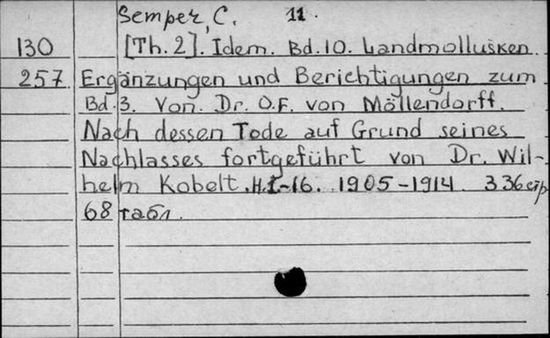 Semper, C. 11.
130 [Th. 2]. Idem. Bd. 10. Landmollusken.
257 Ergänzungen und Berichtigungen zum
Bd. 3. Von. Dr. O.F. von Möllendorff.
Nach dessen Tode auf Grund seines
Nachlasses fortgeführt von Dr. Wil-
helm Kobelt. H.I-16. 1905-1914. 336 стр
68 табл.